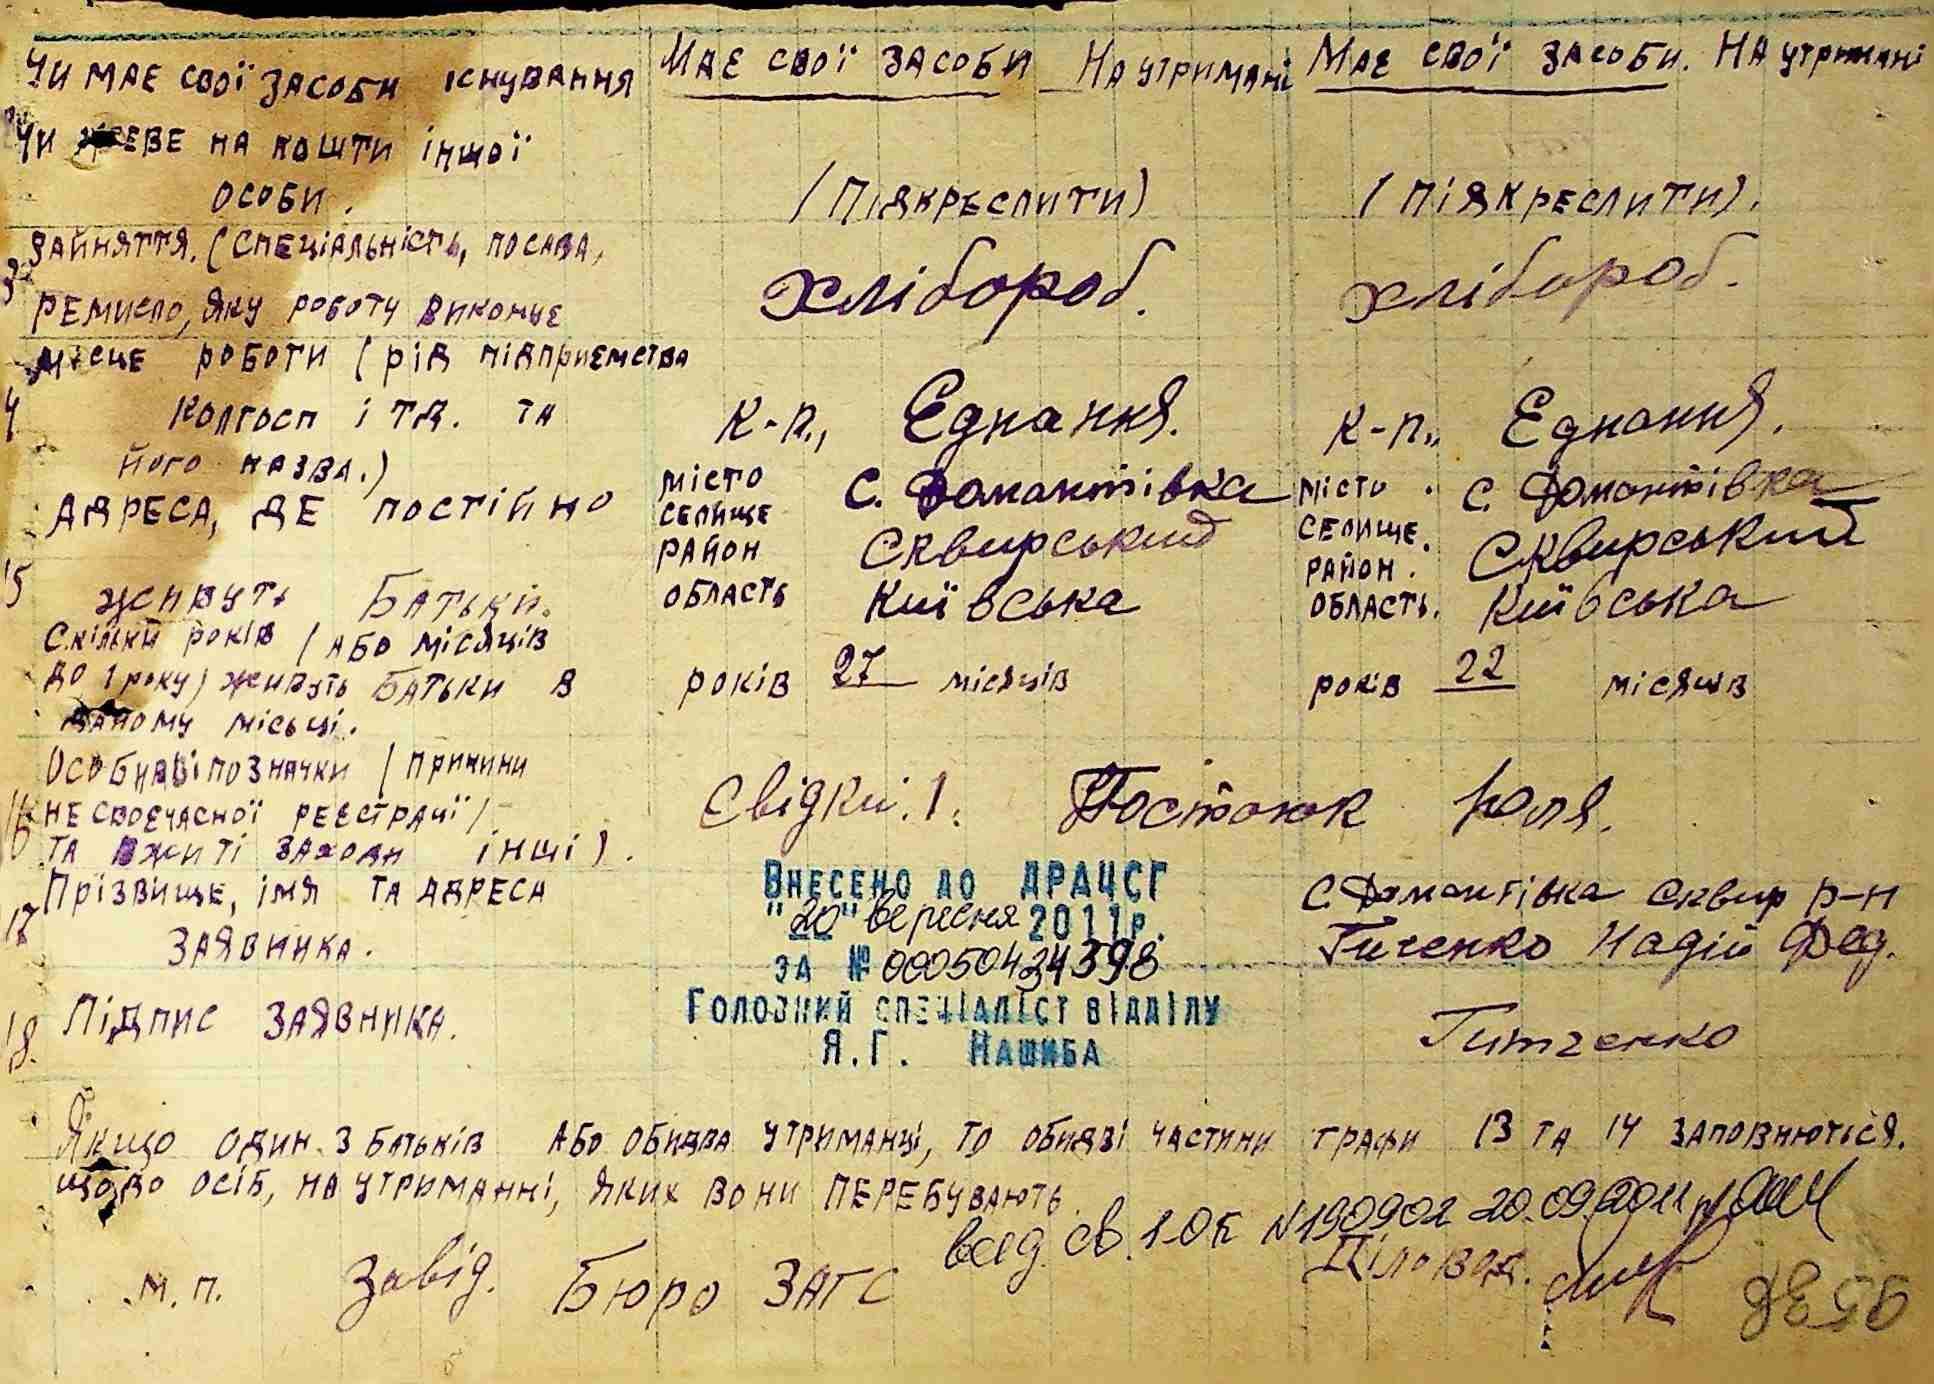 Чи має свої засоби існування Має свої засоби На утримані Має свої засоби. На утримані
Чи живе на кошти іншої
особи. (Підкреслити) (Підкреслити).
Зайняття. (Спеціальність, посада,
3 ремисло, яку роботу виконує хлібороб. хлібороб.
Місце роботи (рід підприємства
4 колгосп і тд. та К-п,, Єднання. К-п,, Єднання.
його назва.)
Адреса, де постійно місто с. Домантівка місто с. Домантівка
селище селище.
район Сквирський район. Сквирський
15 живуть Батьки. область Київська область. Київська
Скільки років (або місяців
до 1 року) живуть Батьки в років 27 місяців років 22 місяців
даному місьці.
Особливі позначки (причини
16 не своєчасної реєстрації) Свідки: 1. Постоюк Юля.
та вжиті заходи інші).
17 Прізвище, імя та адреса с Домантівка Сквир р-н
заявника. Гиченко Надій Фед.
Внесено до ДРАЦСГ
"20" вересня 2011р.
за № 00050424398
Головний спеціаліст відділу
Я.Г. Нашиба
18. Підпис заявника. Гитченко
Якщо один з батьків або обидва утриманці, то обидві частини графи 13 та 14 заповнюються.
щодо осіб, на утриманні, яких вони перебувають
вид. св. 1-ОК N190902 20.09.2011 р
м.п. Завід. Бюро ЗАГС Діловод.